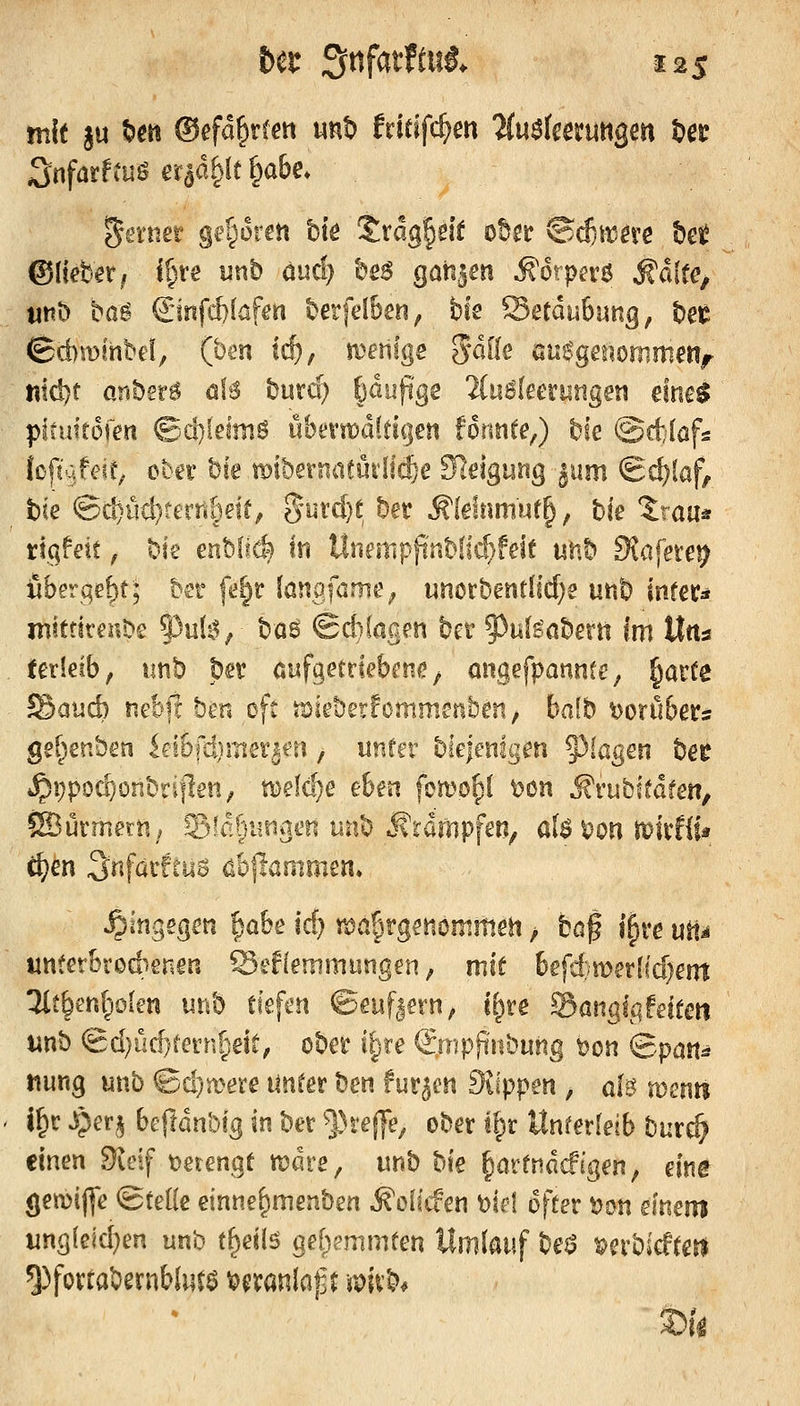 der Infarktus. 125
mit zu den Gefährten und kritischen Ausleerungen der
Infarktus erzählt habe.
Ferner gehören die Trägheit oder Schwere der
Glieder, ihre und auch des ganzen Körpers Kälte,
und das Einschlafen derselben, die Betäubung, der
Schwindel, (den ich, wenige Fälle ausgenommen,
nicht anders als durch häufige Ausleerungen eines
pituitösen Schleims überwältigen konnte,) die Schlaf-
losigkeit, oder die widernatürliche Neigung zum Schlaf,
die Schüchternheit, Furcht der Kleinmuth, die Trau-
rigkeit, die endlich in Unempfindlichkeit und Raserey
übergeht; der sehr langsame, unordentliche und inter-
mittirende Puls, das Schlagen der Pulsadern im Un-
terleib, und der aufgetriebene, angespannte, harte
Bauch nebst den oft wiederkommenden, bald vorüber-
gehenden Leibschmerzen, unter diejenigen Plagen der
Hypochondristen, welche eben sowohl von Kruditäten,
Würmern, Blähungen und Krämpfen, als von wirkli-
chen Infarktus abstammen.
Hingegen habe ich wahrgenommen, daß ihre un-
unterbrochenen Beklemmungen, mit beschwerlichem
Athenholen und tiefen Seufzern, ihre Bangigkeiten
und Schüchternheit, oder ihre Empfindung von Span-
nung und Schwere unter den kurzen Rippen, als wenn
ihr Herz beständig in der Presse, oder ihr Unterleib durch
einen Reif verengt wäre, und die hartnäckigen, eine
gewisse Stelle einnehmenden Koliken viel öfter von einem
ungleichen und theils gehemmten Umlauf des verdickten
Pfortadernbluts veranlaßt wird.
Die